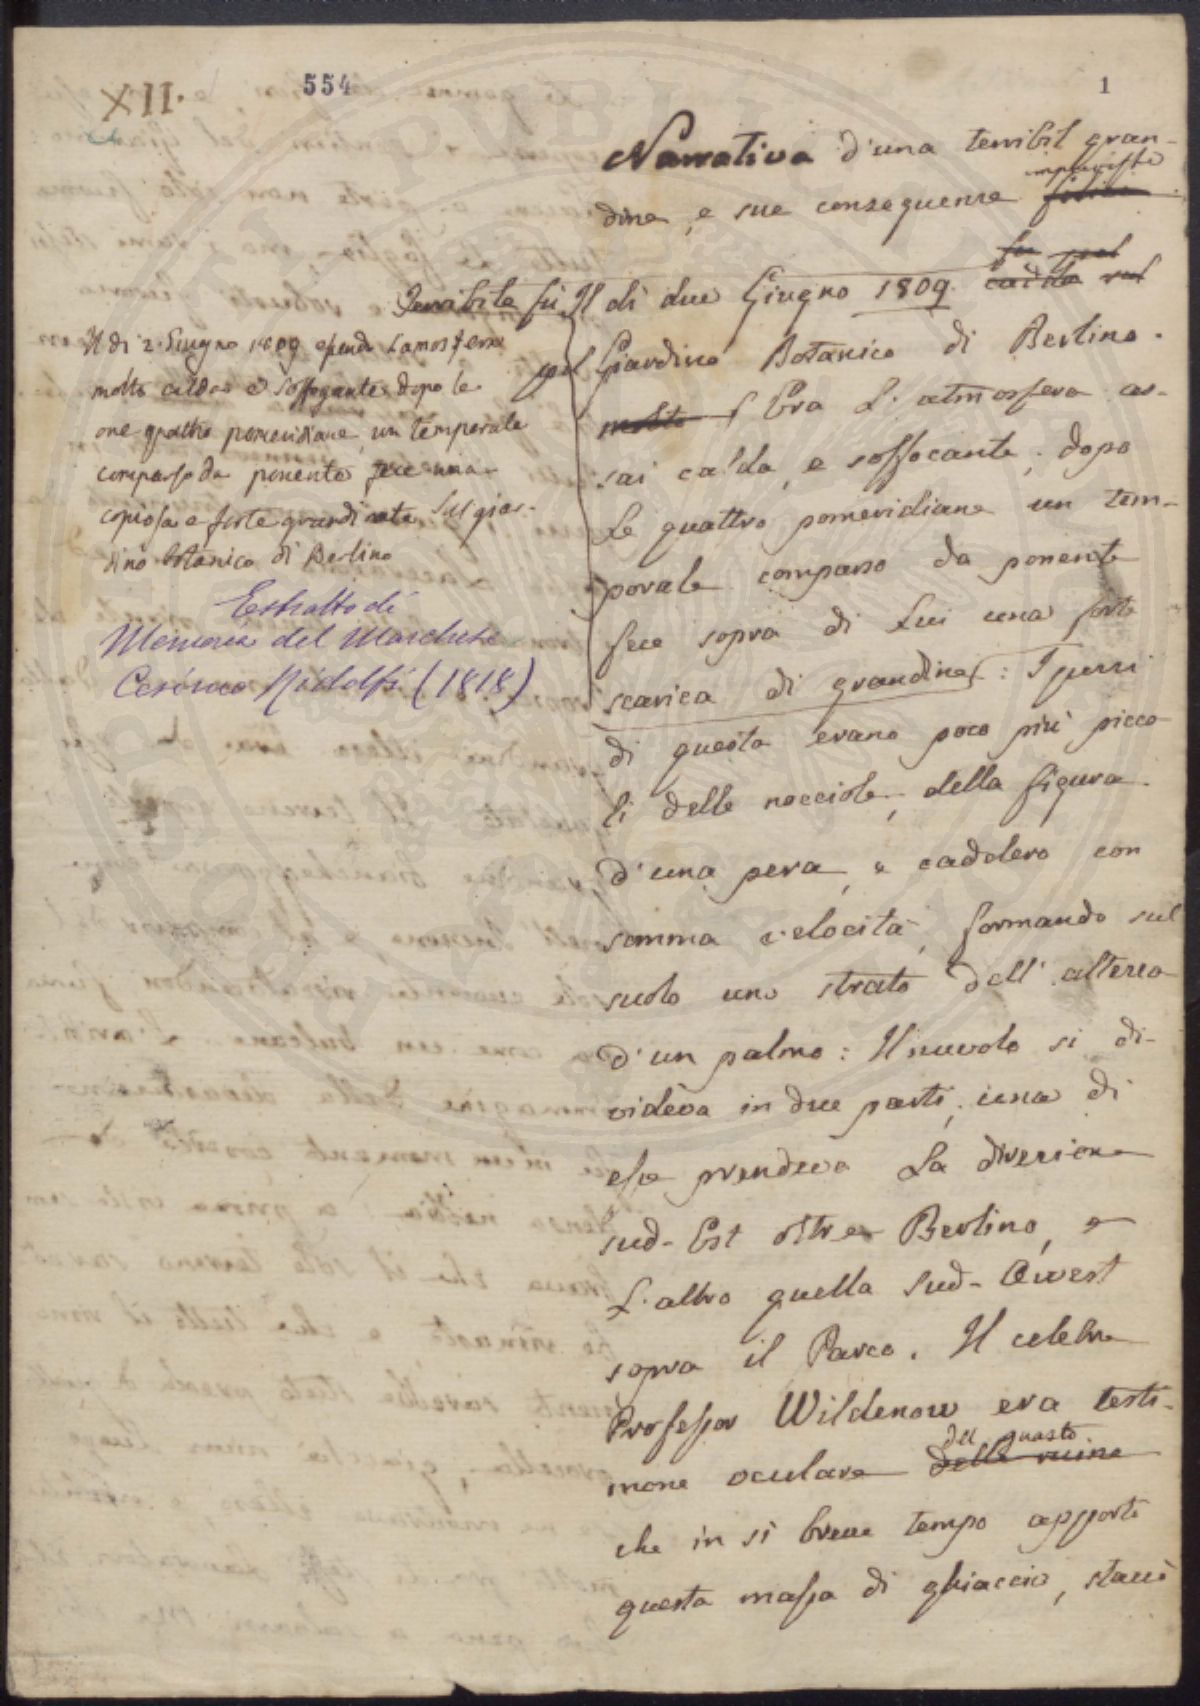 XII.
554
1
Narrativa d'una terribil gran-
dine, e sue conseguenze impreviste
Terribile fù Il dì due Giugno 1809. cadde sul
pel Giardino Botanico di Berlino.
molto Era L'atmosfera as-
sai calda, e soffocante; dopo
Le quattro pomeridiane un tem-
porale comparso da ponente
fece sopra di Lui una forte
scarica di grandine: I pezzi
di questa erano poco più picco
li delle nocciole, della figura
d'una pera, e caddero con
somma velocità, formando sul
suolo uno strato dell'altezza
d'un palmo: Il nuvolo si di-
videva in due parti; una di
esse prendeva La direzione
sud-Est oltre Berlino, e
L'altro quella Sud-Owest
sopra il Parco. Il celebre
Professor Wildenow era testi-
mone oculare delle ruine
del guasto
che in sì breve tempo apportò
questa massa di ghiaccio, staccò
Il dì 2. Giugno 1809 essendo L'atmosfera
molto calda e soffogante dopo le
ore quattro pomeridiane un temporale
comparso da ponente fece una
copiosa e forte grandinata sul giar-
dino botanico di Berlino
Estratto di
Memoria del Marchese
Cosimo Ridolfi (1818)